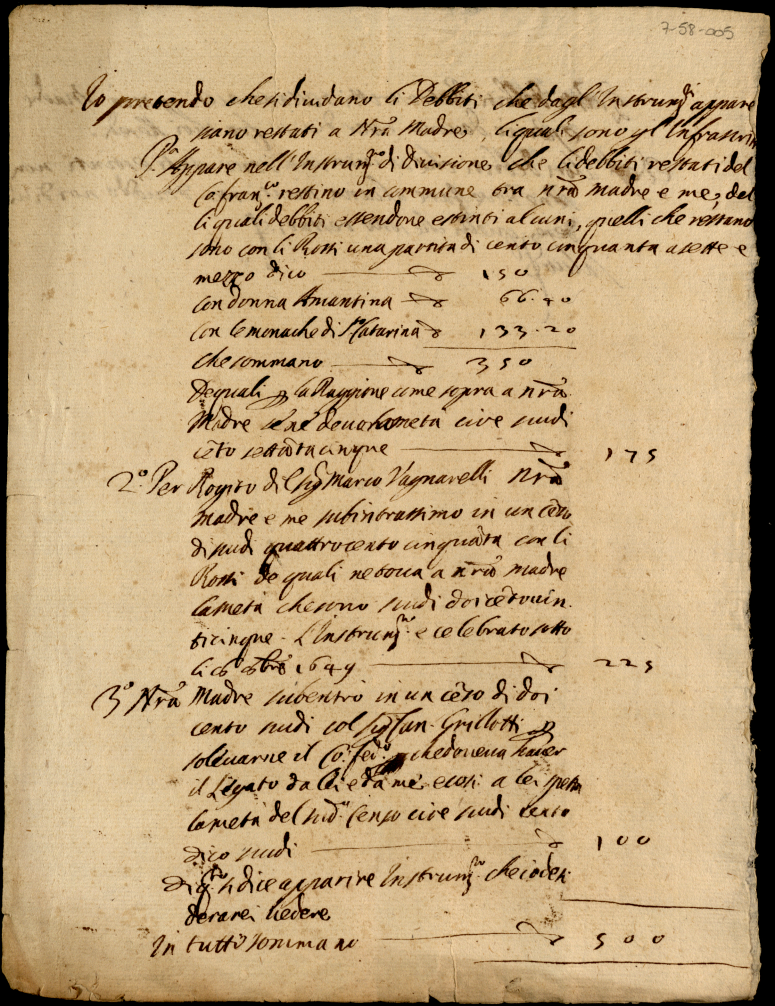 7-58-005
Io pretendo che si dividano li Debbiti che dagl'Instrum.ti appare
siano restati a Nrã Madre, li quali sono gl'Infrascrit
P.a Appare nell'Instrum.to di divisione che li debbiti restati del
Co: Fran.co restino in commune tra nrã madre e me, del
li quali debbiti essendone estinti alcuni, quelli che restano
sono con li Rossi una partita di cento cinquanta a sette e
mezzo dico 150
con donna Amantina 66.40
con le monache di S.ta Catarina 133.20
che sommano 350
De quali p la Raggione come sopra a nrã
Madre se ne deve la metà cioè scudi
cẽto settãta cinque 175
2.o Per Rogito del Sig.r Marco Vagnarelli Nrã
madre e me subintrassimo in un cẽso
di scudi quattrocento cinquãta con li
Rossi de quali ne tocca a nrã madre
la metà che sono scudi doi cẽto vin
ticinque. L'Instrum.to e celebrato sotto
li 1649 225
3.o Nrã Madre subentrò in un cẽso di doi
cento scudi col Sig.r Can. Grillotti p
sollevarne il Co: Fed.o che doveva haver
il Legato da lei e da me e così a lei spetta
la metà del sud.o Censo cioè scudi cento
dico scudi 100
di q.sto si dice apparire Instrum.to che io desi
derarei vedere
In tutto sommano 500